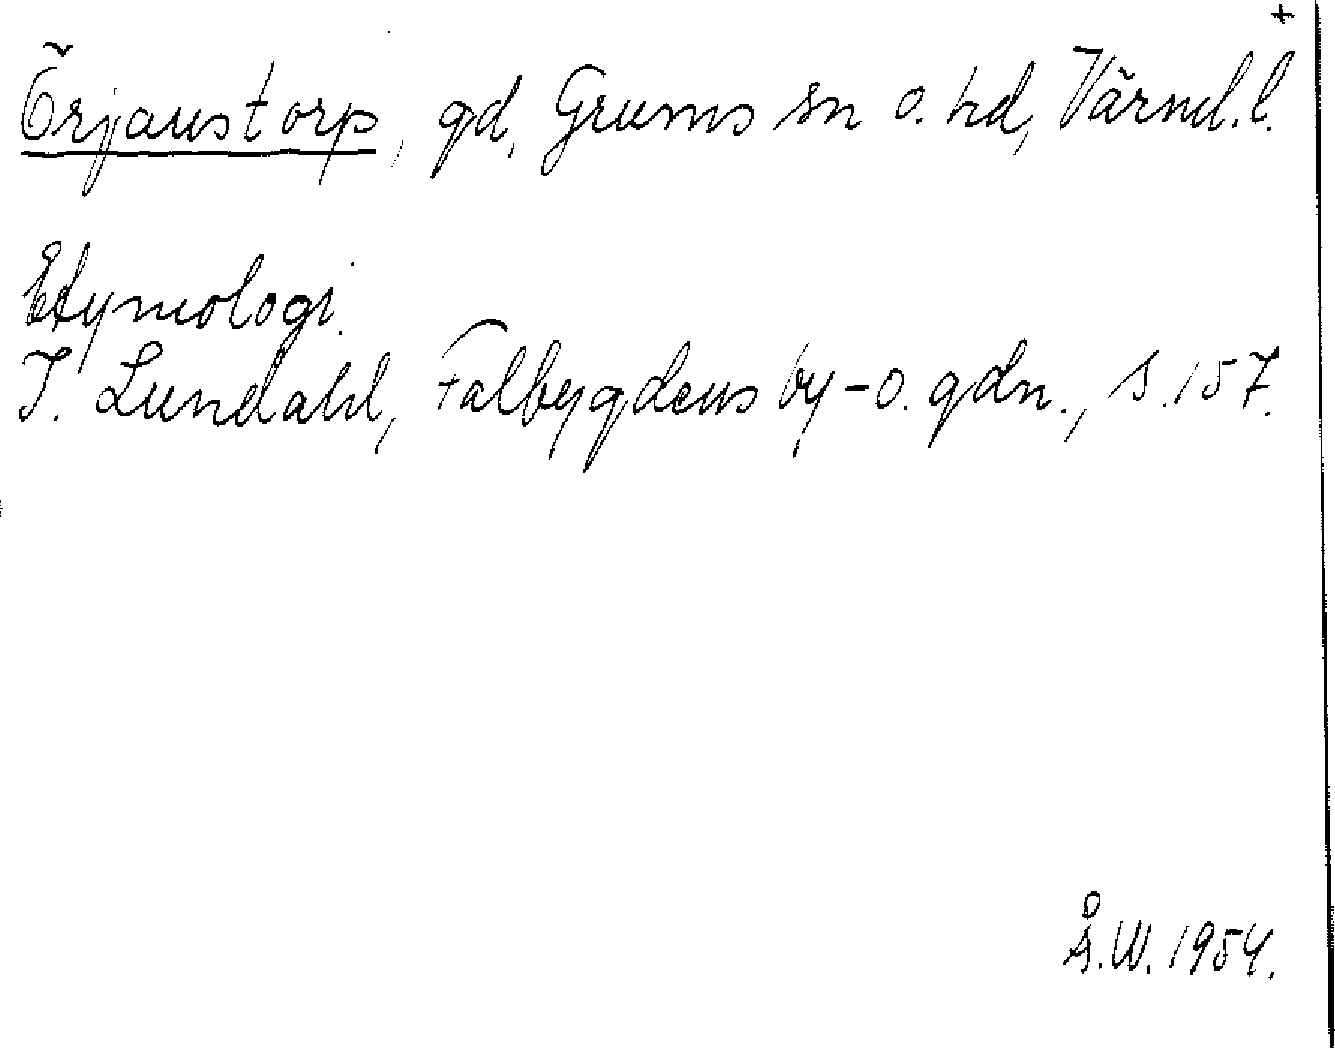 +
Örjanstorp, gd, Grums sn o. hd, Värml. l.
Etymologi.
I. Lundahl, Falbygdens by- o. gdn., s. 157.
Å.W. 1954.